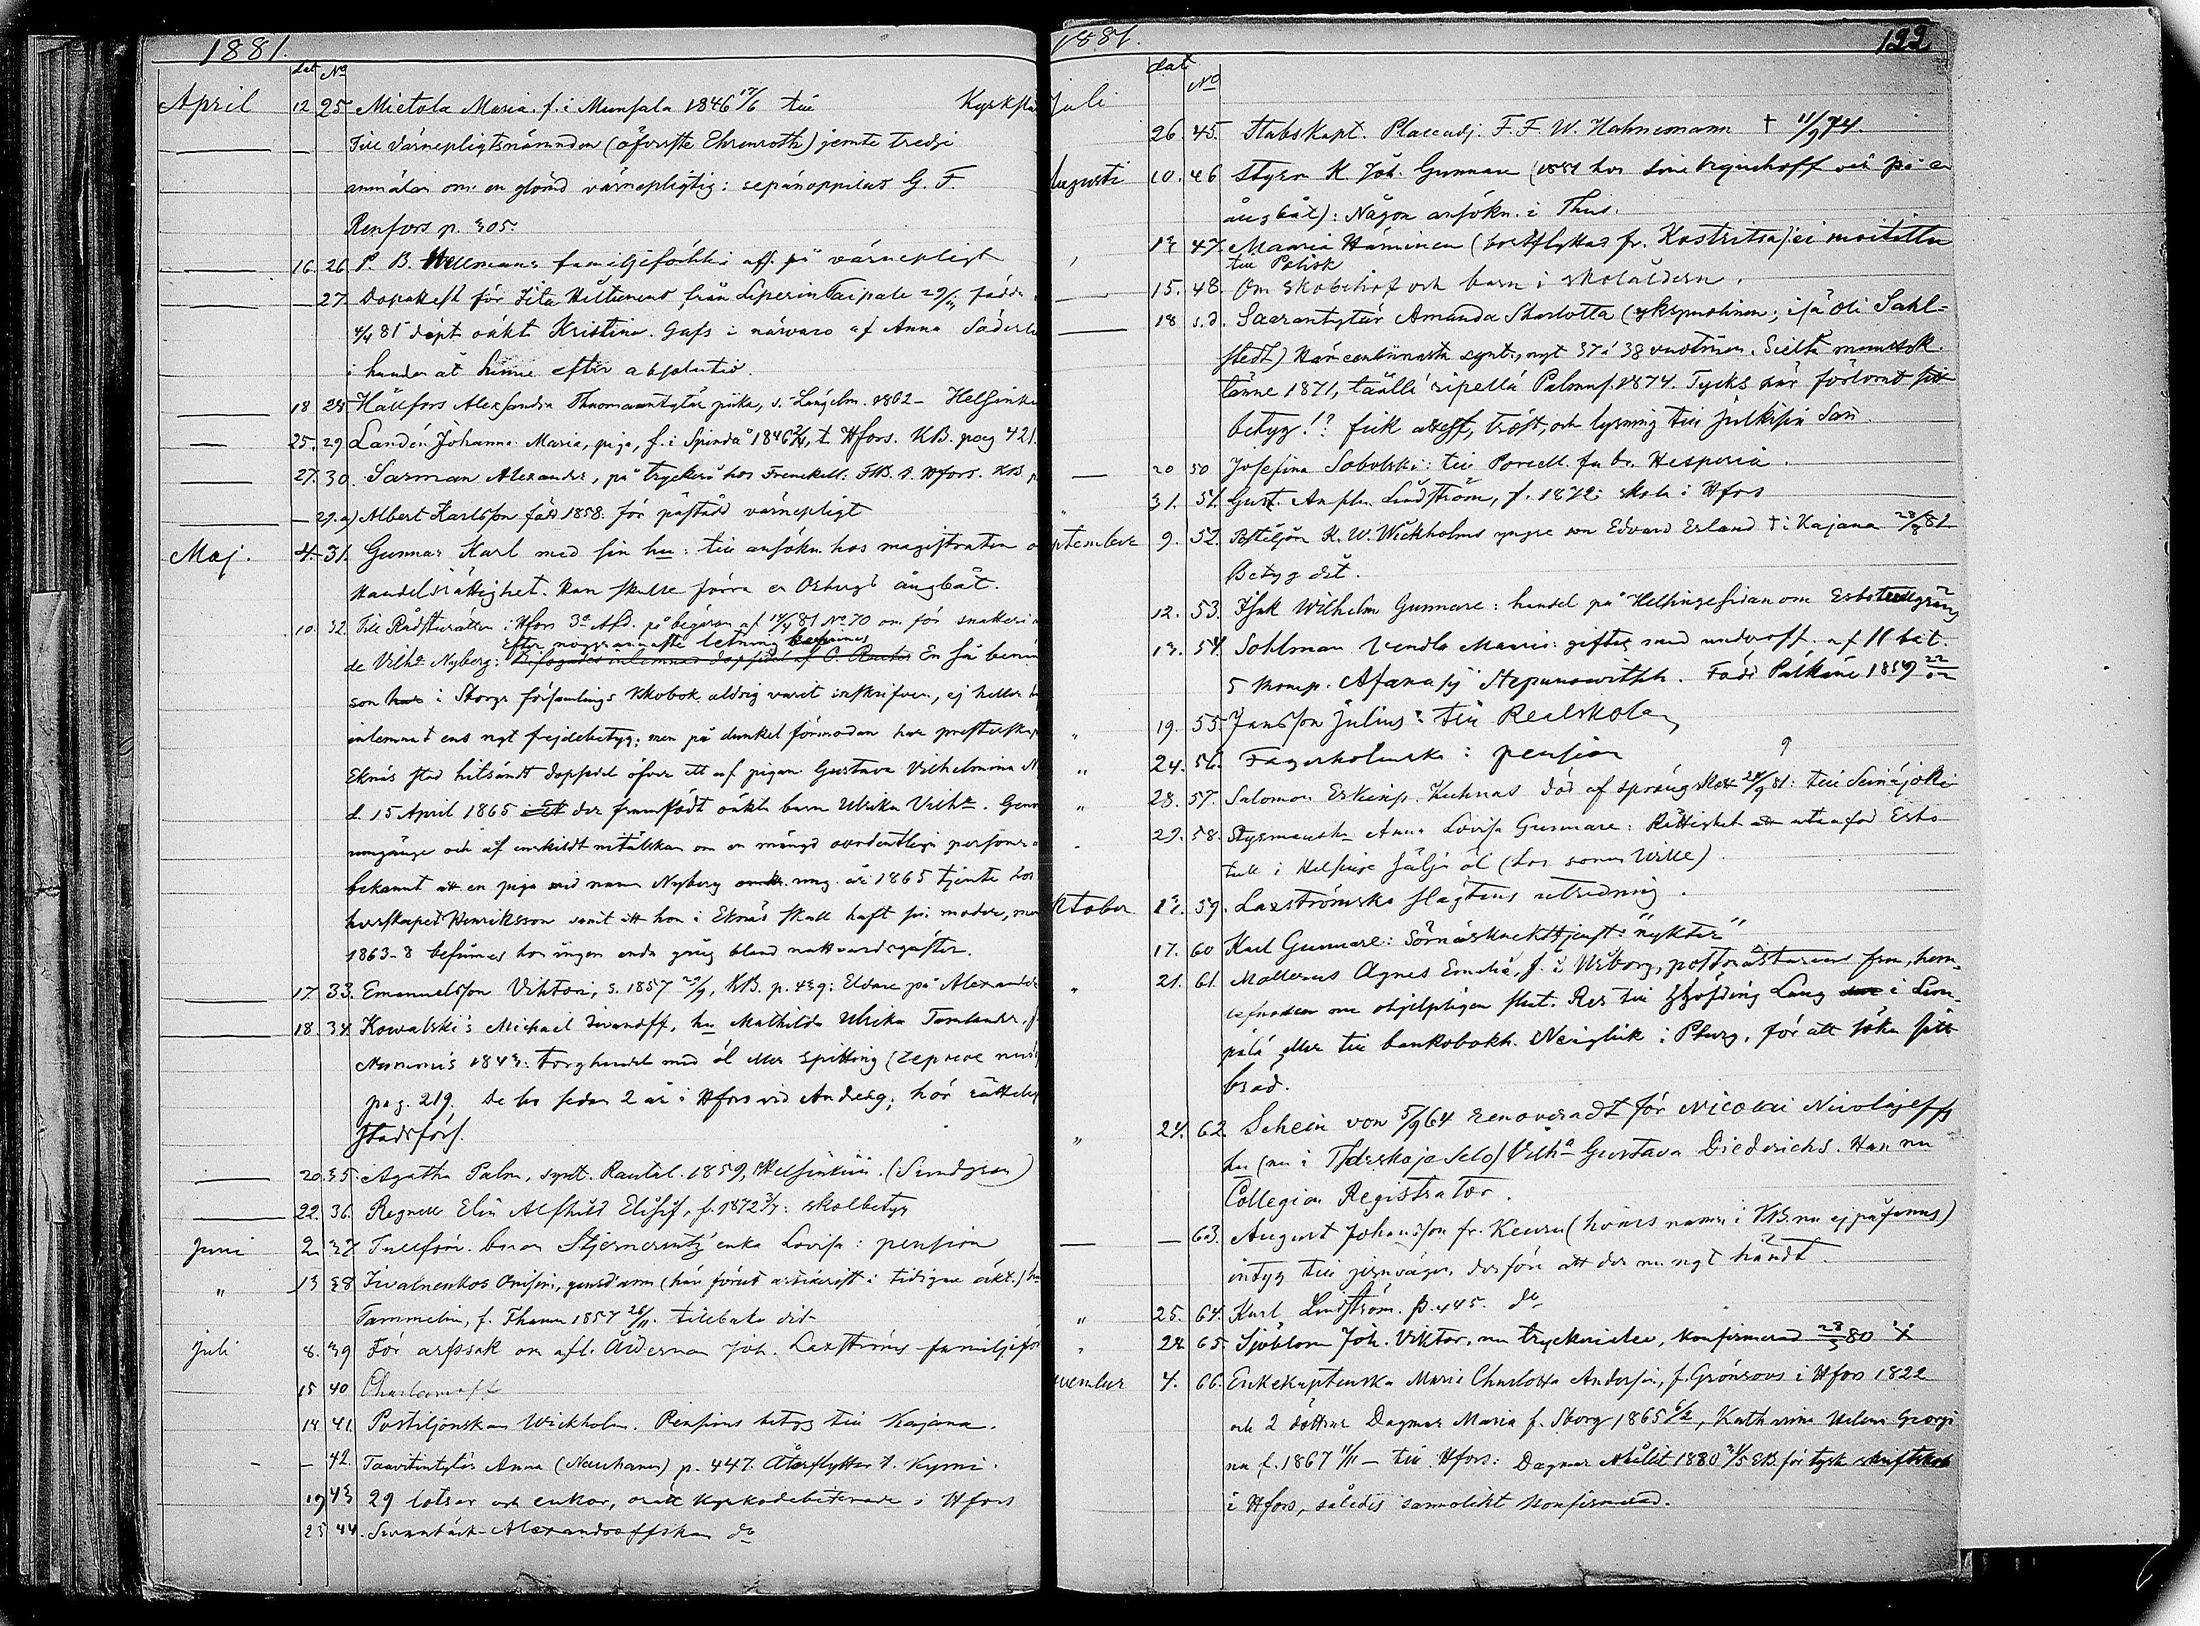 1881.
dat No
April 12 25 Mietola Maria f. i Munsala 1846 17/6 till Kyrksl
Till Värnepligtsnämnden (öfverste Ehrnrooth) jemte tredje
anmälan om en glömd värnepligtig: sepänoppilas G. F.
Renfors p. 305.
16. 26 P. B. Hellmans familjeförhh. i aff. på värnepligt
27. Dopattest för Fita Hiltunens från Liperin Taipale 29/ födda
4/4 81 döpt oäkt Kristina. Gafs i närvaro af Anna Söderl
i handen åt henne efter absolution.
18 28 Hällfors Alexandra Thomaantytär piika, s. Längelm. 1862 - Helsinki
25. 29. Landén Johanna Maria, piga, f. i Spinda 1846 t. Hfors. KB. pag 421.
27. 30. Sarman Alexander, på tryckeri hos Frenckell: FKB. t. Hfors. KB. p
29. a) Albert Karlsson född 1858. för påstådd värnepligt
Maj. 4. 31. Gunnar Karl med sin hu: till ansökn. hos magistraten o
handelsrättighet. Han skulle föra en ångbåt.
10. 32. Till Rådsturätten i Hfors 3e Afd. på begäran af 14/4 81 No 70 om för snatteri
efter noggrannaste letning
de Vilh:a Nyberg: Bifogades inlemnad dopsedel af C. En så benäm
son i Sborgs församlings Kkobok aldrig varit inskrifven, ej heller
inlemnat ens ngt frejdebetyg; men på dunkel förmodan har presterskap
Eknäs stad hitsändt dopsedel öfver ett af pigan Gustava Vilhelmina N
d. 15 April 1865 der framfödt oäkta barn Ulrika Vilh:a. Genom
umgänge och af enskildt meddelskan om en mängd ovordentliga personer
bekannt att en piga vid namn Nyberg omkr. ung. år 1865 tjente hos
herrskapet Henriksson samt att hon i Eknäs skall haft sin moder, men
1863-8 befinnes hon ingen enda gång bland nattvardsgäster.
17. 33. Emanuelsson Viktor, s. 1857 29/9, KB. p. 439: Eldare på Alexander
18. 34. Kowalski's Michael Ivanoff, hu Mathilda Ulrika Tamlander, f.
Nummis 1843: torghandel med öl eller spitting
pag. 219. De bo sedan 2 år i Hfors vid Andreég; hör rätteligen
stadsförs.
20. 35. Agatha Palm, synt. Rautal. 1859, Helsinkiin. (Sundgren)
22. 36. Regnell Elin Alfhild Elisif, f. 1872 3/7: skolbetyg
Juni 2. 37 Tullförv. baron Stjerncrantz' enka Lovisa: pension
" 13 38 Iivalnenkos Onisin, gensdarm (här förut antecknadt i tidigare äkt.) hu
Tammelin, f. Thamm 1857 26/11. tillbaka dit.
Juli 8. 39 För arfssak om afl. Åldermans Joh. Laxströms familjeför
15 40
18 41. Postiljonskan Wickholm. Pensions betyg till Kajana.
- 42. Taavitintytär Anna (Nauhanen) p. 447. Återflyttar t. Kymi.
19 43 29 lotsar och enkor, orätt kyrkodebiterade i Hfors
25 44. Svennbäck-Alexandroffskan do
1881. 122
dat No
Juli
26. 45. Stabskapt. Placeadj. F. F. W. Hahnemann † 11/9 74.
Augusti 10. 46 Styrm. K. Joh. Gunnare (1881 hos sine) på en
ångbåt): Någon ansökn. i Thus.
13 47. Maaria Häminen (bortflyttad fr. Kostritsa): ei muitittu
till Polisk
15. 48. Om skolbehof och barn i skolåldern.
18 s.d. Saarantytär Amanda Sharlotta (yksipuolinen; isä oli Sahl-
stedt) Hämeenlinnasta synt., nyt 37 à 38 vuotinen. Sieltä muutok.
tänne 1871, täällä ripellä Palmus. 1874. Tycks här förlorat sitt
betyg!? fick attest, tröst, och lysning till Julkisiin San.
20 50 Josefina Sobolski: till Porcell. fabr. Hesperia.
31. 51. Gust. Anshn. Lindström, f. 1872: skola i Hfors
September 9. 52. Postiljon K. W. Wickholms yngre son Edvard Erland † i Kajana 23/8 81
Betyg dit.
12. 53. Isak Wilhelm Gunnare: handel på Helsingesidan om Esbotullgräns
13. 54. Sohlman Vendla Maria: giftes med underoff. af 11 bat.
5 komp. Afanasij Stepanowitsch. Född Pälkäne 1859 22/
" 19. 55. Jansson Julius: till Realskolan
" 24. 56. Fagerholmska: pension
" 28. 57. Salomon Erkinp. Kuhnas död af sprängskott 24/9 81: till Seinäjoki
" 29. 58. Styrmanska Anna Lovisa Gunnare: Rättighet att utanför Esbo
tull i Helsinge sälja öl (bos. som Wille).
Oktober 13. 59. Laxströmska slägtens utredning.
17. 60 Karl Gunnare: Sörnäskuckstjenst: "nykter"
" 21. 61. Mollerus Agnes Emelia, f. i Wiborg, postmästarens frn, hem-
lefnaden om ohjelpligen slut. Res till Höfding Lang i Lim-
pälä eller till bankobokh. Neiglick i Pburg, för att söka sitt
bröd.
" 24. 62. Schein von 5/9 64 renoveradt för Nicolai Nicolajeffs
hu (nu i Tsarskoje Selo) Vilh:a Gustava Diederichs. Han nu
Collegia Registrator.
- 63. August Johansson fr. Keuru (hvars namn i KB. nu ej påfinns)
intyg till jernvägen, derföre att der nu ngt händt.
" 25. 64. Karl Lindström. p. 445. do
" 28 65. Sjöblom Joh. Viktor, nu tryckerielev, konfirmerad 23/5 80
November 4. 66. Enkekaptenska Maria Charlotta Andersin, f. Grönroos i Hfors 1822
och 2 döttrar Dagmar Maria f. Sborg 1865 6/2, Katharina Helena Georgi
na f. 1867 11/11 - till Hfors: Dagmar erhållit 1880 24/5 EB. för tysk skriftskola
i Hfors, således sannolikt konfirmerad.